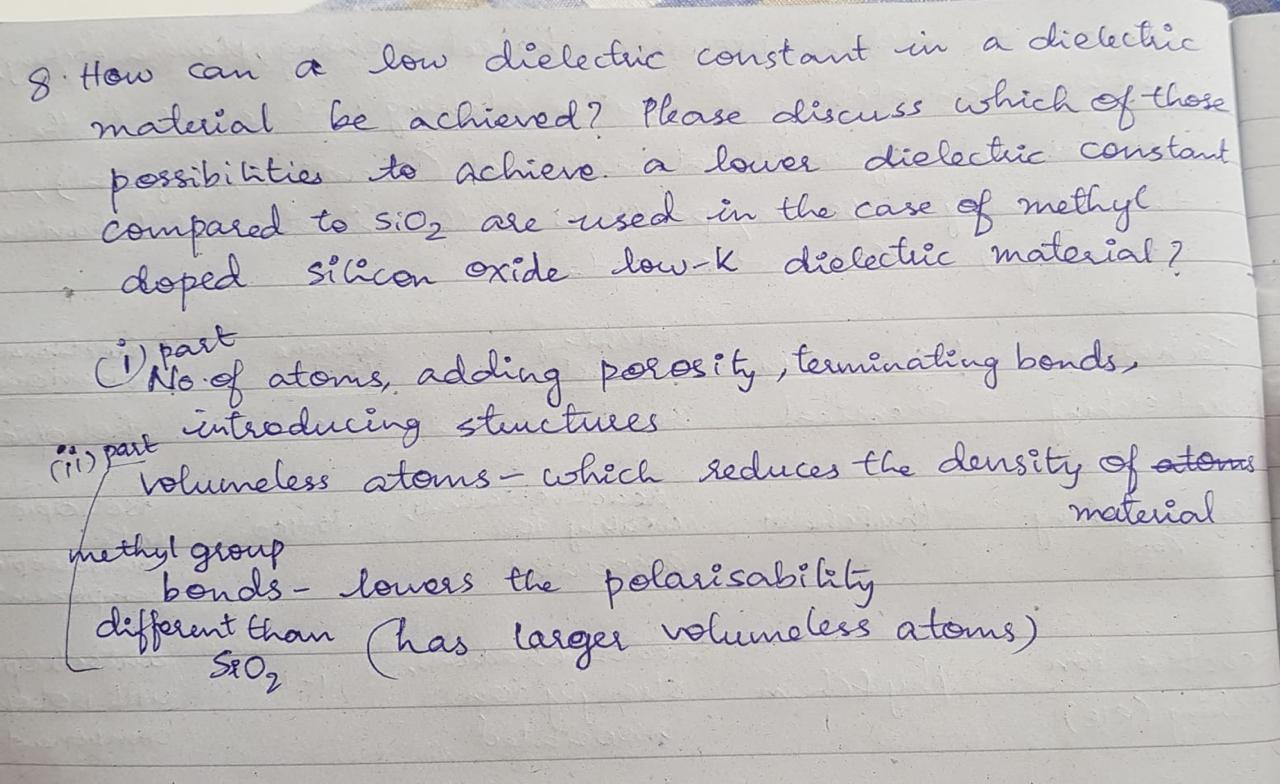 8. How can a low dielectric constant in a dielectric
material be achieved? Please discuss which of those
possibilities to achieve a lower dielectric constant
compared to SiO2 are used in the case of methyl
doped silicon oxide low-K dielectric material?
(i) part
No. of atoms, adding porosity, terminating bonds,
introducing structures
(ii) part
volumeless atoms - which reduces the density of atoms
material
methyl group
bonds - lowers the polarisability
different than (has larger volumeless atoms)
SiO2